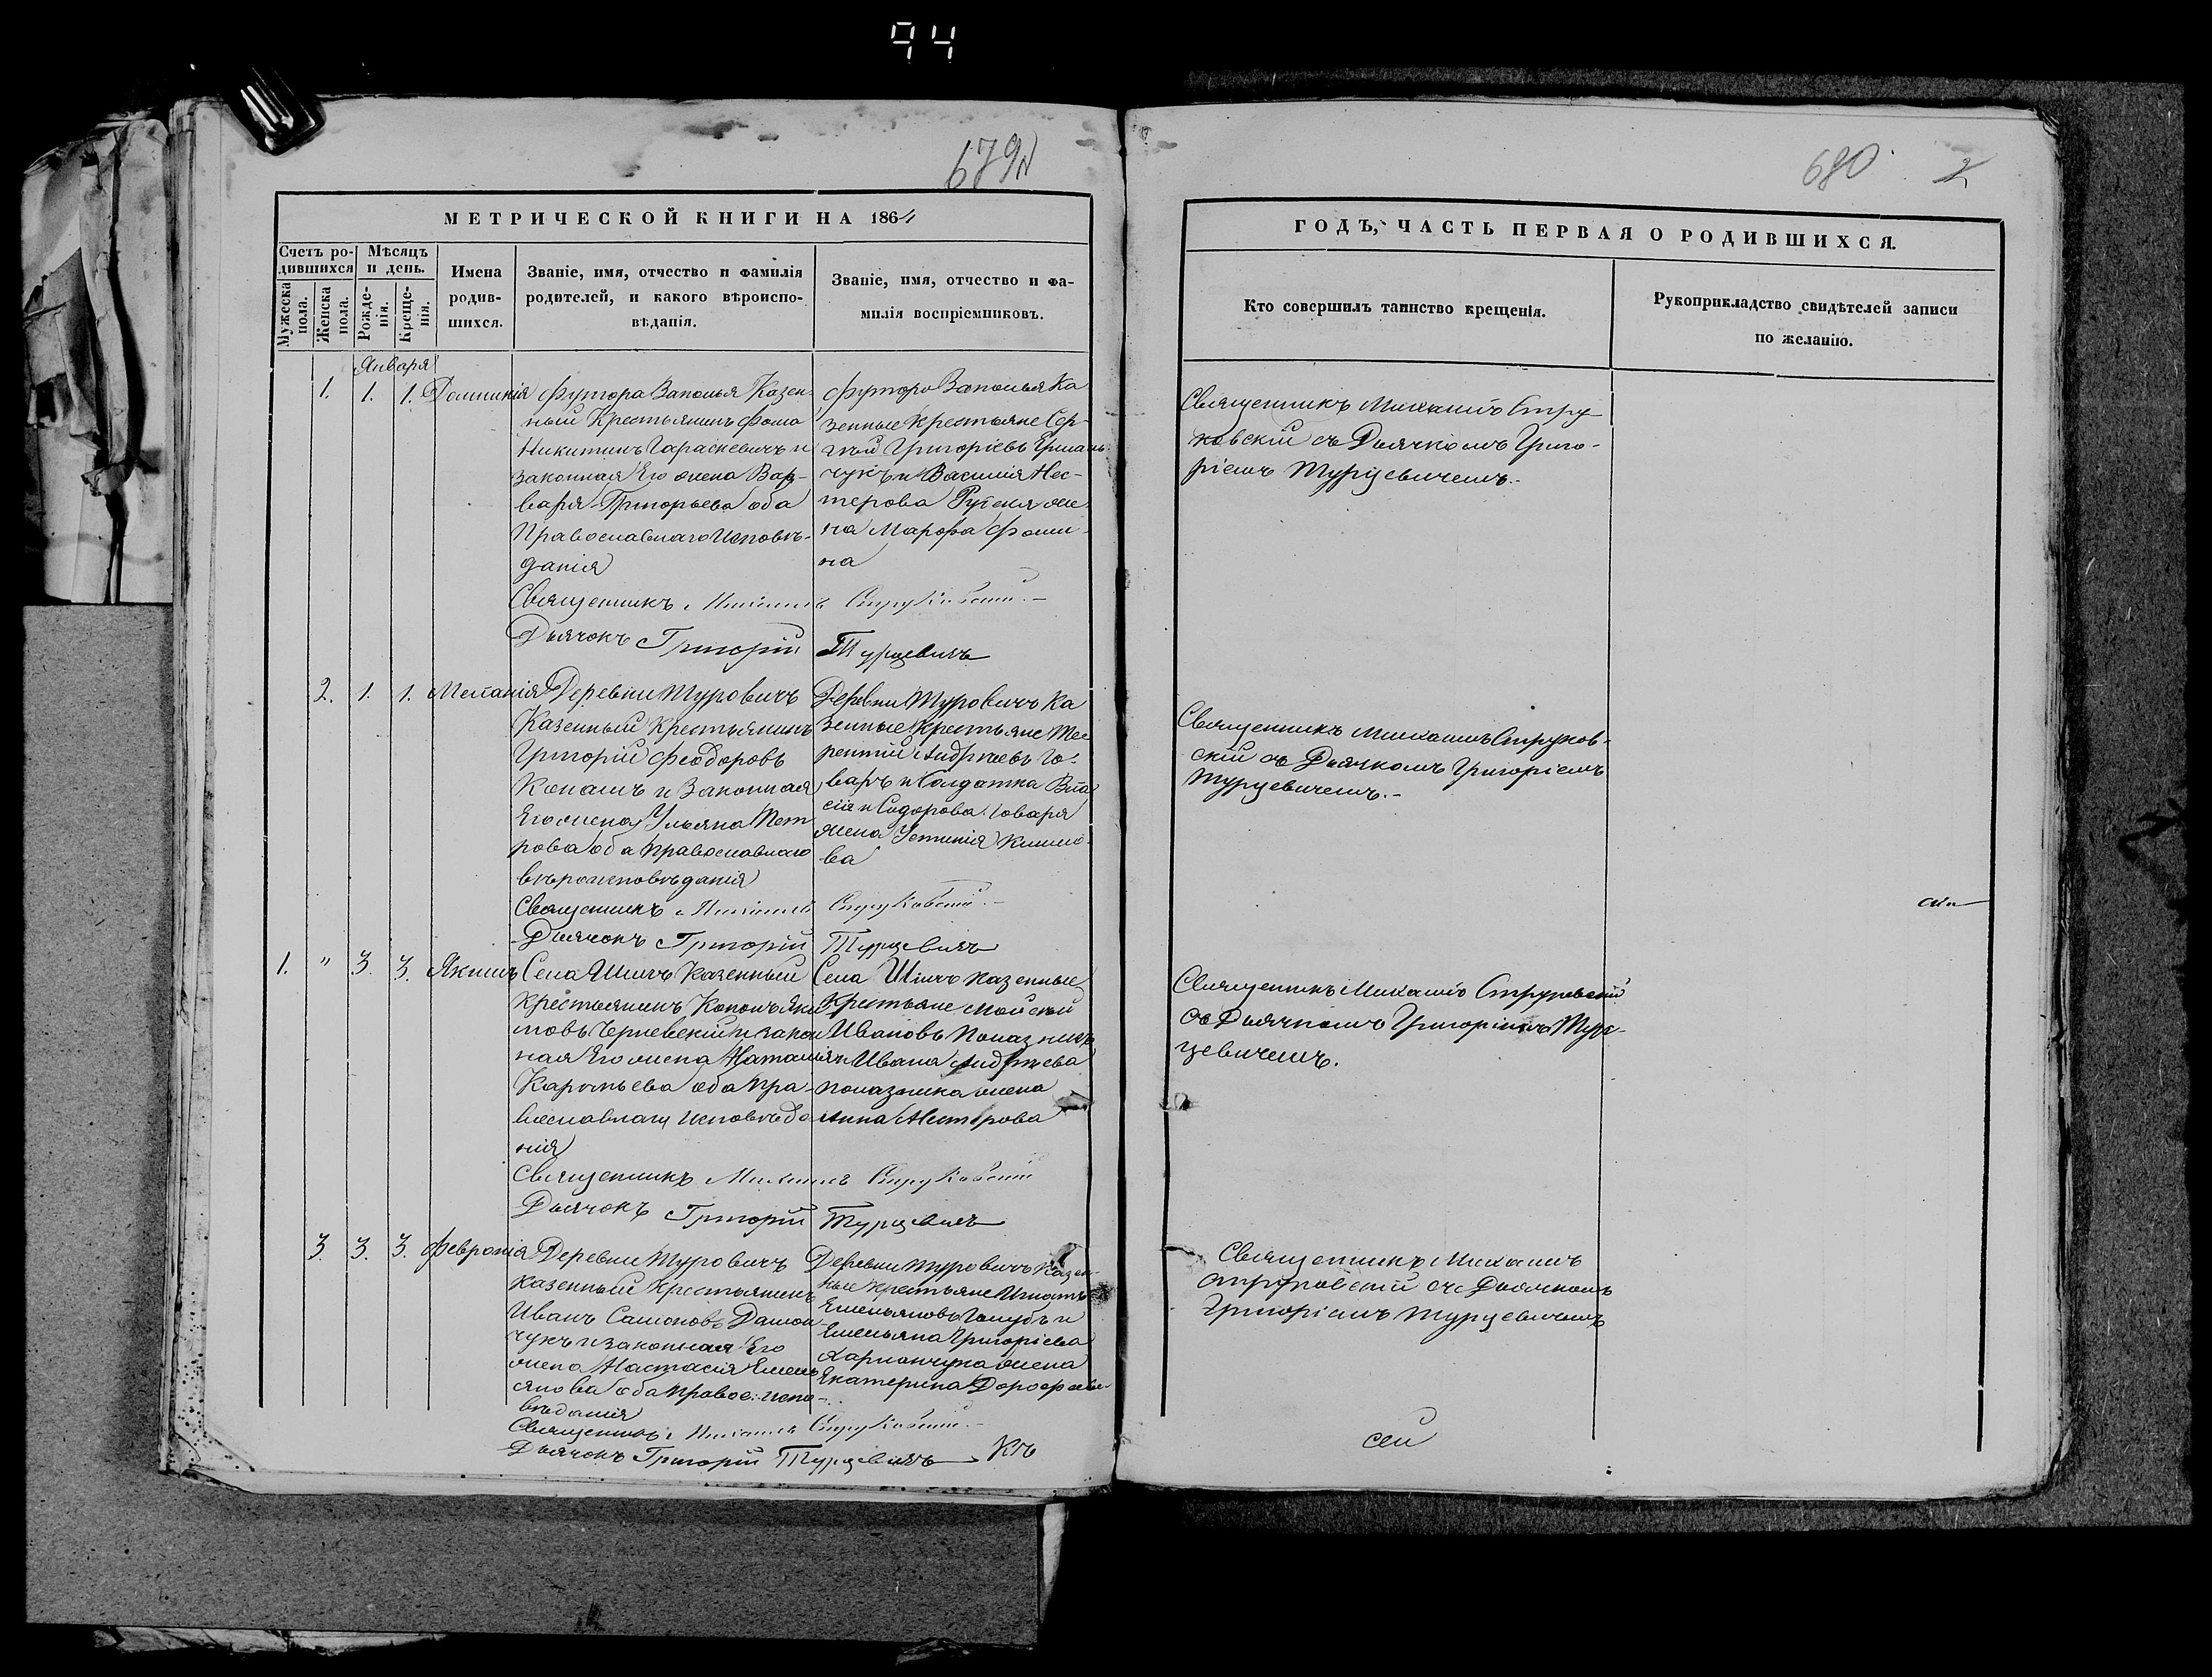 94
679
680
2
МЕТРИЧЕСКОЙ КНИГИ НА 1864
ГОДЪ, ЧАСТЬ ПЕРВАЯ О РОДИВШИХСЯ.
Счетъ ро-
дившихся
Мужеска
пола.
Женска
пола.
Мѣсяцъ
и день.
Рожде-
нія.
Креще-
нія.
Имена
родив-
шихся.
Званіе, имя, отчество и фамилія
родителей, и какого вѣроиспо-
вѣданія.
Званіе, имя, отчество и фа-
милія воспріемниковъ.
Кто совершилъ таинство крещенія.
Рукоприкладство свидѣтелей записи
по желанію.
Января
1. 1. 1. Домникія
Футора Заполья Казен-
ный Крестьянинъ Фома
Никитинъ Гараскевичъ и
законная Его жена Вар-
вара Григорьева оба
Православнаго Исповѣ-
данія
Футора Заполья Ка
зенные Крестьяне Сер-
гѣй Григоріевъ
чукъ и Василія Нес-
терова жe
на Марфа Фоми-
на
Священникъ Михаилъ Струковскій
Дьячокъ Григорій Турцевичъ
Священникъ Михаилъ Стру-
ковскій съ Дьячкомъ Григо-
ріемъ Турцевичемъ.
2. 1. 1. Меланія
Деревни Туровичъ
Казенный Крестьянинъ
Григорій Феодоровъ
и Законная
Его жена Ульяна Пет
рова оба православнаго
вѣроисповѣданія
Деревни Туровичъ Ка
зенные Крестьяне Те
рентій Андреевъ Го-
варъ и Солдатка
Сидорова Говаря
жена Устинія Климо-
ва
Священникъ Михаилъ Струковскій
Дьячокъ Григорій Турцевичъ
Священникъ Михаилъ Струков-
скій съ Дьячкомъ Григоріемъ
Турцевичемъ.
1. " 3. 3. Якимъ
Села Казенный
Крестьянинъ Кононъ Яки
мовъ Черневскій и закон
ная Его жена Наталія
Карпьева оба пра-
вославнаго исповѣда
нія
Села казенные
Крестьяне Мойсей
Ивановъ
и Ивана Андреева
жена
Анна Нестерова
Священникъ Михаилъ Струковскій
Дьячокъ Григорій Турцевичъ
Священникъ Михаилъ Струковскій
съ Дьячкомъ Григоріемъ Тур-
цевичемъ.
3. 3. 3. Февронія
Деревни Туровичъ
казенный Крестьянинъ
Иванъ Самоновъ
чукъ и законная Его
жена Настасія Емель
янова оба правос: испо-
вѣданія
Деревни Туровичъ Казен-
ные Крестьяне Игнатъ
Емельяновъ Голубъ и
Емельяна Григоріева
Харпанчука жена
Екатерина Дорофеева
Священникъ Михаилъ Струковскій
Дьячокъ Григорій Турцевичъ Къ
Священникъ Михаилъ
Струковскій съ Дьячкомъ
Григоріемъ Турцевичемъ
сей